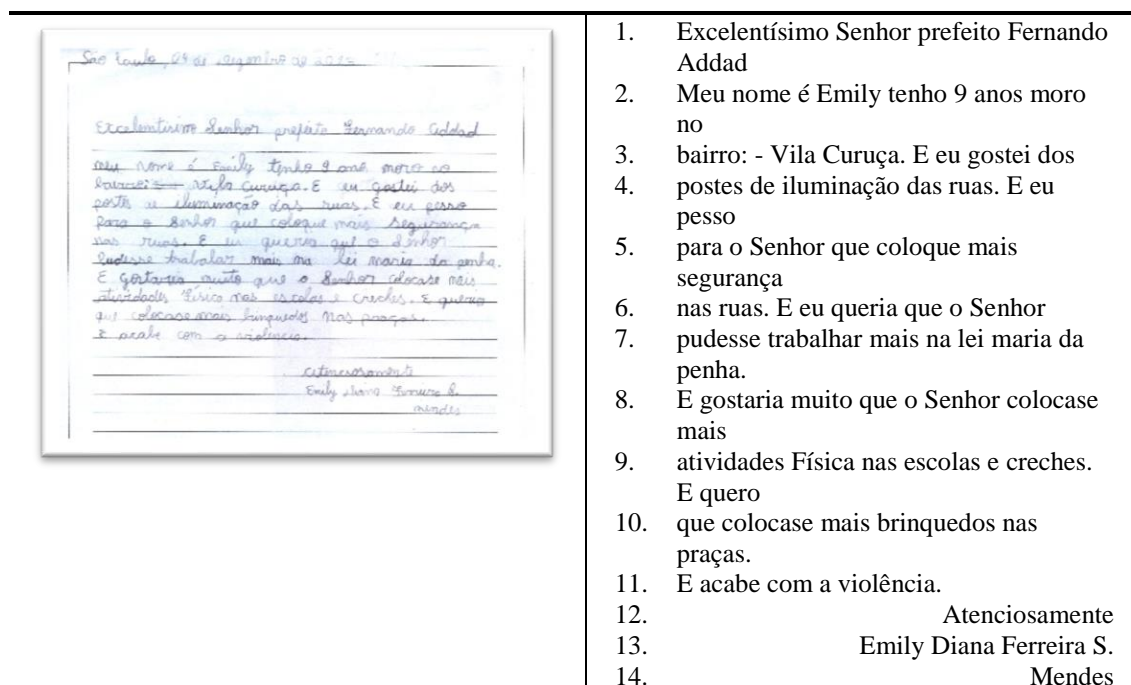 São Paulo, 09 de dezembro de 2015
Excelentissimo Senhor prefeito Fernando Addad
meu nome é Emily tenho 9 ano moro no
bairro: - Vila Curuça. E eu gostei dos
postes de iluminação das ruas. E eu pesso
Para o Senhor que coloque mais segurança
nas ruas. E eu queria que o Senhor
Pudesse trabalar mais na lei maria da penha.
E gostaria muito que o Senhor colocase mais
atividades Física nas escolas e creches. E quero
que colocase mais brinquedos nas praças.
E acabe com a violência.
Atenciosamente
Emily
mendes
1. Excelentísimo Senhor prefeito Fernando
Addad
2. Meu nome é Emily tenho 9 anos moro
no
3. bairro: - Vila Curuça. E eu gostei dos
4. postes de iluminação das ruas. E eu
pesso
5. para o Senhor que coloque mais
segurança
6. nas ruas. E eu queria que o Senhor
7. pudesse trabalhar mais na lei maria da
penha.
8. E gostaria muito que o Senhor colocase
mais
9. atividades Física nas escolas e creches.
E quero
10. que colocase mais brinquedos nas
praças.
11. E acabe com a violência.
12. Atenciosamente
13. Emily Diana Ferreira S.
14. Mendes